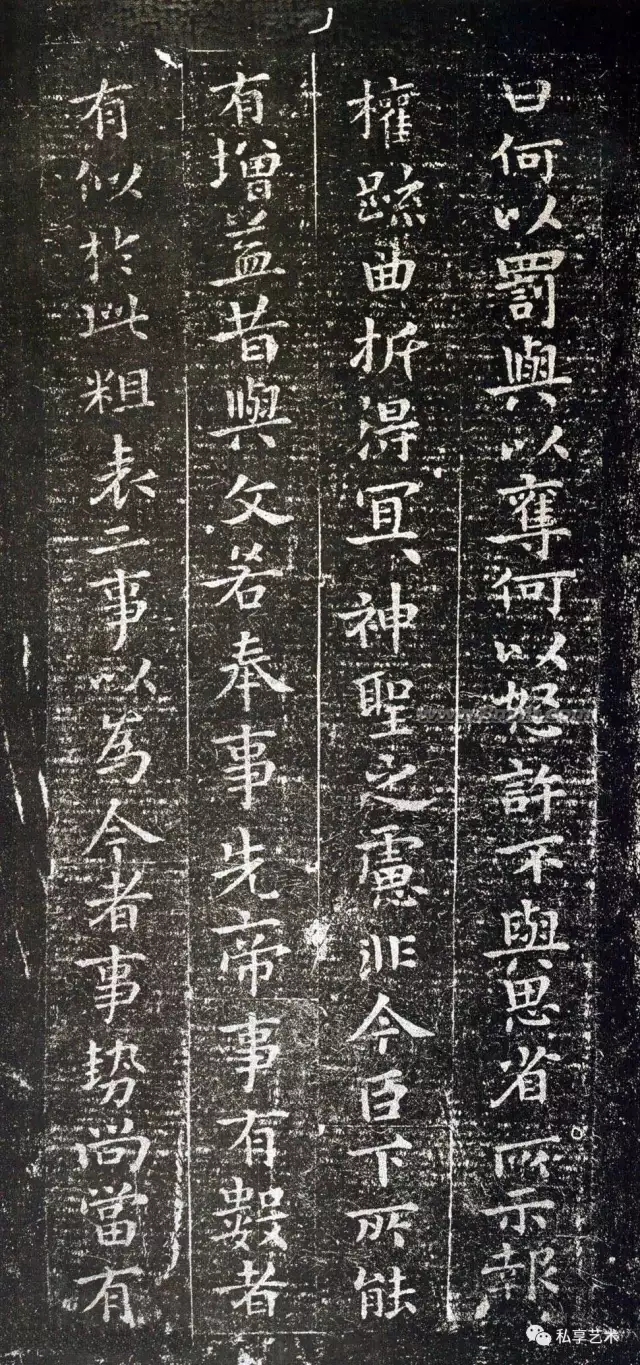 曰何以罰與以奪何以怒許不與思省所示報
權踈曲折得冝神聖之慮非今臣下所能
有增益昔與文若奉事先帝事有數者
有似於此粗表二事以為今者事势尚當有
私享艺术